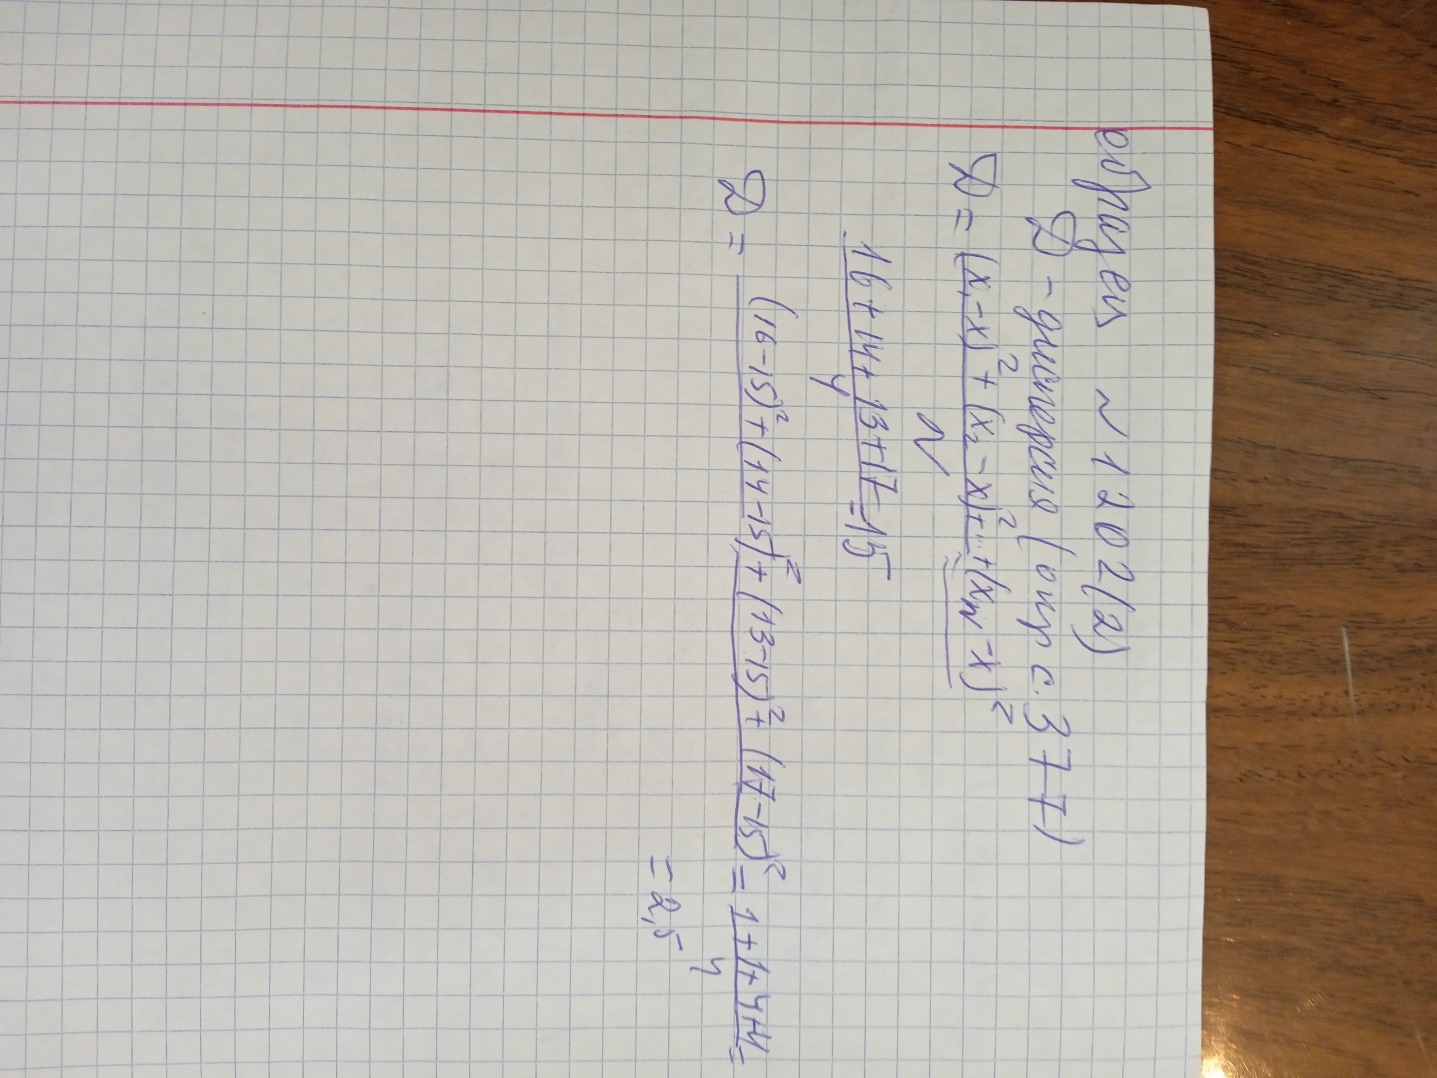 образец ~ 1202(2)
D - дисперсия (опр с. 377)
D = (x₁-x)² + (x₂-x)² + ... + (x_N-x)²
N
16 + 14 + 13 + 17 = 15
4
D = (16-15)² + (14-15)² + (13-15)² + (17-15)² = 1+1+4+4 =
4
= 2,5